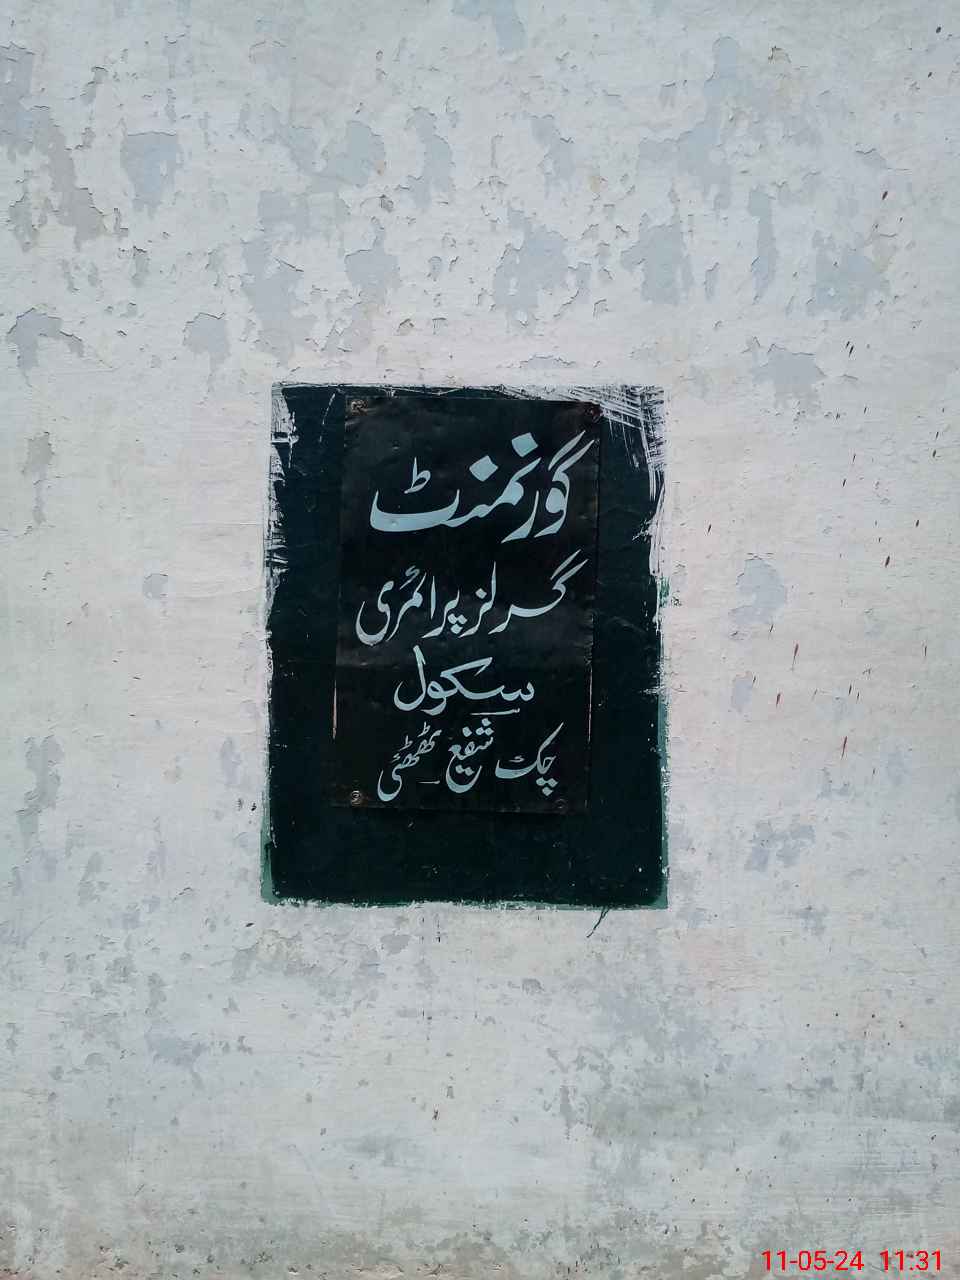 گورنمنٹ
گرلز پرائمری
سکول
چک شفیع ٹھٹھئی
11-05-24 11:31